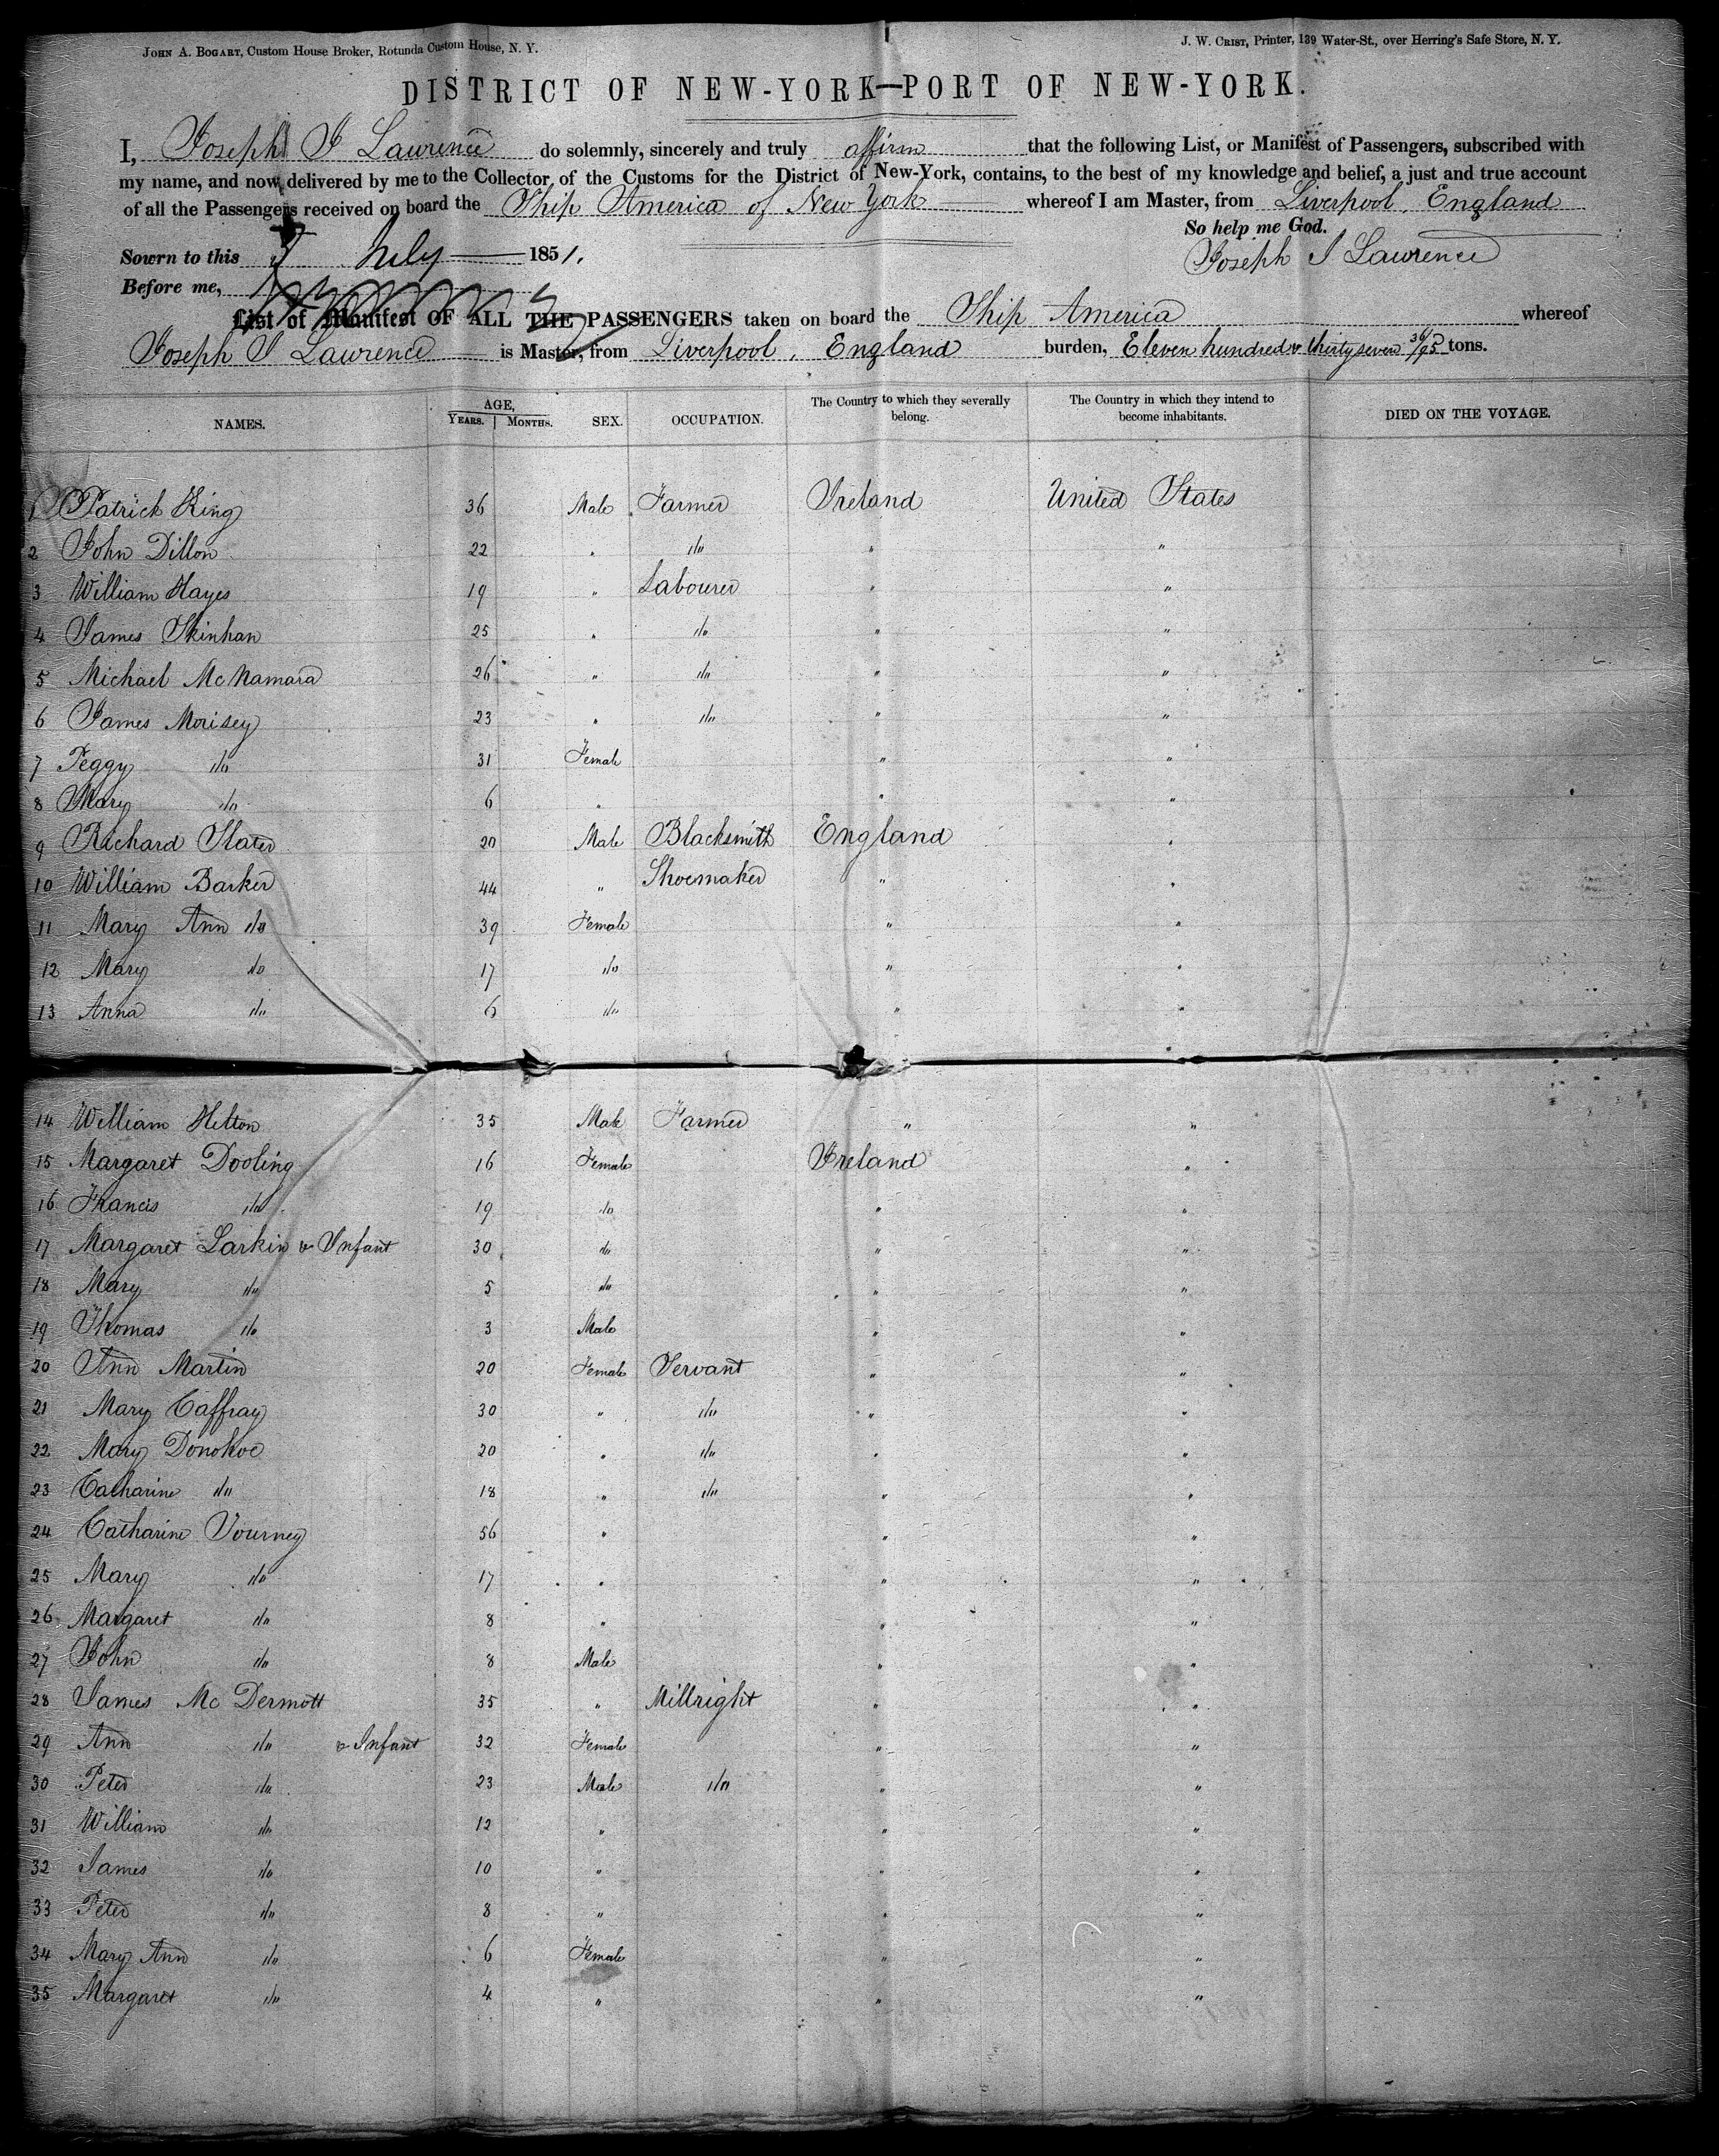 JOHN A. BOGART, Custom House Broker, Rotunda Custom House, N. Y.
J. W. CRIST, Printer, 139 Water-St., over Herring's Safe Store, N. Y.
DISTRICT OF NEW-YORK—PORT OF NEW-YORK.
I, Joseph J Lawrence do solemnly, sincerely and truly affirm that the following List, or Manifest of Passengers, subscribed with
my name, and now delivered by me to the Collector of the Customs for the District of New-York, contains, to the best of my knowledge and belief, a just and true account
of all the Passengers received on board the Ship America of New York whereof I am Master, from Liverpool, England
So help me God.
Sowrn to this July 1851.
Joseph J Lawrence
Before me,
List of Manifest OF ALL THE PASSENGERS taken on board the Ship America whereof
Joseph J Lawrence is Master, from Liverpool, England burden, Eleven hundred & thirty seven 36/95 tons.
NAMES. AGE, YEARS. MONTHS. SEX. OCCUPATION. The Country to which they severally belong. The Country in which they intend to become inhabitants. DIED ON THE VOYAGE.
1 Patrick King 36 Male Farmer Ireland United States
2 John Dillon 22 " do " "
3 William Hayes 19 " Labourer " "
4 James Skinhan 25 " do " "
5 Michael McNamara 26 " do " "
6 James Morisey 23 " do " "
7 Peggy do 31 Female " "
8 Mary do 6 " " "
9 Richard Slater 20 Male Blacksmith England "
10 William Barker 44 " Shoemaker " "
11 Mary Ann do 39 Female " "
12 Mary do 17 do " "
13 Anna do 6 do " "
14 William Hilton 35 Male Farmer " "
15 Margaret Dooling 16 Female Ireland "
16 Francis do 19 do " "
17 Margaret Larkin & Infant 30 do " "
18 Mary do 5 do " "
19 Thomas do 3 Male " "
20 Ann Martin 20 Female Servant " "
21 Mary Caffray 30 " do " "
22 Mary Donohoe 20 " do " "
23 Catharine do 18 " do " "
24 Catharine Tourney 56 " " "
25 Mary do 17 " " "
26 Margaret do 8 " " "
27 John do 8 Male " "
28 James Mc Dermott 35 " Millright " "
29 Ann do & Infant 32 Female " "
30 Peter do 23 Male do " "
31 William do 12 " " "
32 James do 10 " " "
33 Peter do 8 " " "
34 Mary Ann do 6 Female " "
35 Margaret do 4 " " "